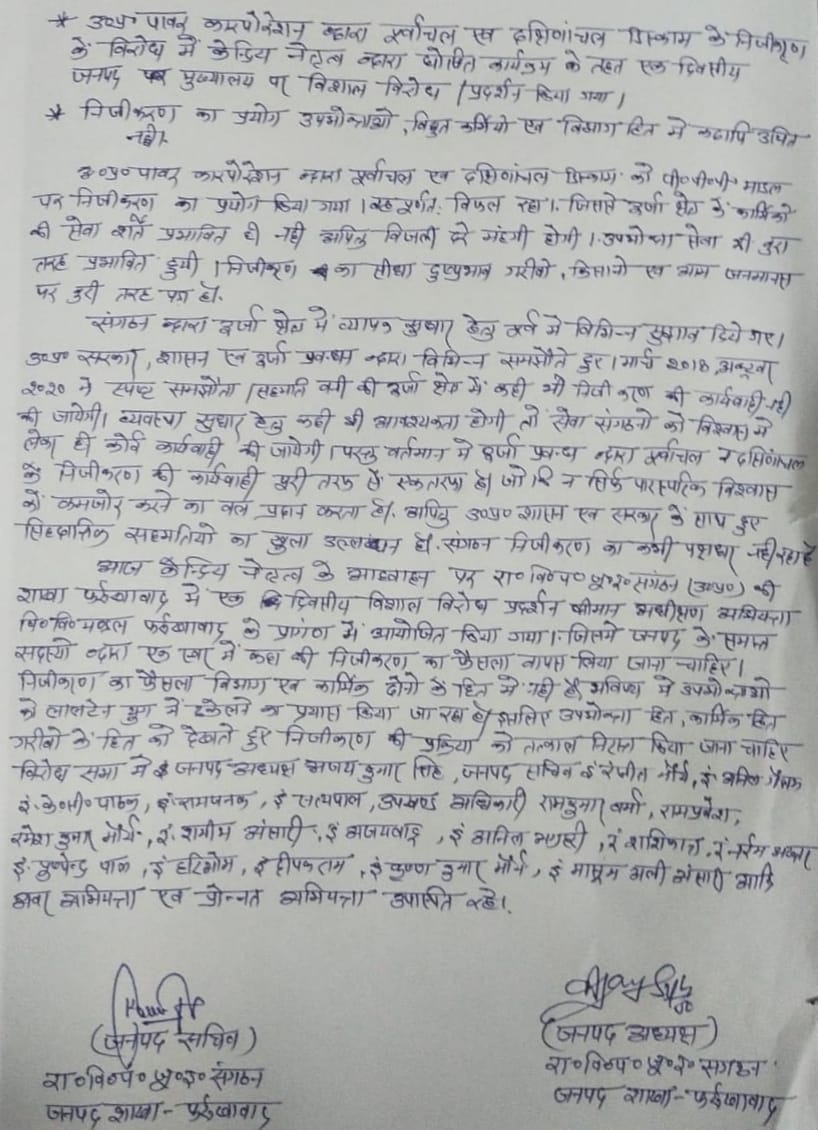 * उ०प्र० पावर कारपोरेशन द्वारा पूर्वांचल एवं दक्षिणांचल डिस्काम के निजीकरण
के विरोध में केन्द्रिय नेतृत्व द्वारा घोषित कार्यक्रम के तहत एक दिवसीय
जनपद मुख्यालय पर विशाल विरोध / प्रदर्शन किया गया।
* निजीकरण का प्रयोग उपभोक्ताओ, विद्युत कर्मियो एवं विभाग हित मे कदापि उचित
नही।
उ०प्र० पावर कारपोरेशन द्वारा पूर्वांचल एवं दक्षिणांचल डिस्काम को पी०पी०पी० माडल
पर निजीकरण का प्रयोग किया गया। वह पूर्णत: विफल रहा। जिससे ऊर्जा क्षेत्र के कार्मिको
की सेवा शर्ते प्रभावित ही नही अपितु बिजली दरे मंहगी होगी। उपभोक्ता सेवा भी बुरी
तरह प्रभावित हुयी। निजीकरण का सीधा दुष्प्रभाव गरीबो, किसानो एवं आम जनमानस
पर बुरी तरह पड़ा है।
संगठन द्वारा ऊर्जा क्षेत्र मे व्यापक सुधार हेतु पूर्व मे विभिन्न सुझाव दिये गए।
उ०प्र० सरकार, शासन एवं ऊर्जा प्रबन्धन द्वारा विभिन्न समझौते हुए। मार्च 2018, अक्टूबर
2020 मे स्पष्ट समझौता / सहमति बनी की ऊर्जा क्षेत्र में कही भी निजीकरण की कार्यवाही नही
की जायेगी। व्यवस्था सुधार हेतु कही भी आवश्यकता होगी तो सेवा संगठनो को विश्वास मे
लेकर ही कोई कार्यवाही की जायेगी। परन्तु वर्तमान मे ऊर्जा प्रबन्धन द्वारा पूर्वांचल व दक्षिणांचल
के निजीकरण की कार्यवाही पूरी तरह से एकतरफा है। जो कि न सिर्फ पारस्परिक विश्वास
को कमजोर करने का बल प्रदान करता है। अपितु उ०प्र० शासन एवं सरकार के साथ हुए
सिद्धान्तिक सहमतियो का खुला उल्लंघन है। संगठन निजीकरण का कभी पक्षधर नही रहा है
आज केन्द्रिय नेतृत्व के आह्वाहन पर रा०वि०प०जू०इं० संगठन (उ०प्र०) की
शाखा फर्रुखाबाद में एक दिवसीय विशाल विरोध प्रदर्शन श्रीमान अधीक्षण अभियन्ता
वि०वि०मण्डल फर्रुखाबाद के प्रांगण में आयोजित किया गया। जिसमे जनपद के समस्त
सदस्यो द्वारा एक स्वर में कहा की निजीकरण का फैसला वापस लिया जाना चाहिए।
निजीकरण का फैसला विभाग एवं कार्मिक दोनो के हित में नही है, भविष्य मे उपभोक्ताओ
को लालटेन युग में ढकेलने का प्रयास किया जा रहा है। इसलिए उपभोक्ता हित, कार्मिक हित
गरीबो के हित को देखते हुए निजीकरण की प्रक्रिया को तत्काल निरस्त किया जाना चाहिए
विरोध सभा मे इं जनपद अध्यक्ष अजय कुमार सिंह, जनपद सचिव इं रंजीत मौर्य, इं अनिल
इं के०सी० पाठक, इं रामजनक, इं सत्यपाल, उपखण्ड अधिकारी रामकुमार वर्मा, रामप्रवेश,
रमेश कुमार मौर्य, इं. शमीम अंसारी, इं अजयबाबू, इं अनिल, इं शशिकान्त,
इं पुष्पेन्द्र पाल, इं हरिओम, इं दीपकराम, इं कृष्ण कुमार मौर्य, इं मासूम अली अंसारी आदि
अवर अभियन्ता एवं प्रोन्नत अभियन्ता उपस्थित रहे।
Ajay
(जनपद सचिव)
रा०वि०प०जू०इं० संगठन
जनपद शाखा - फर्रुखाबाद
(जनपद अध्यक्ष)
रा०वि०प०जू०इं० संगठन
जनपद शाखा - फर्रुखाबाद